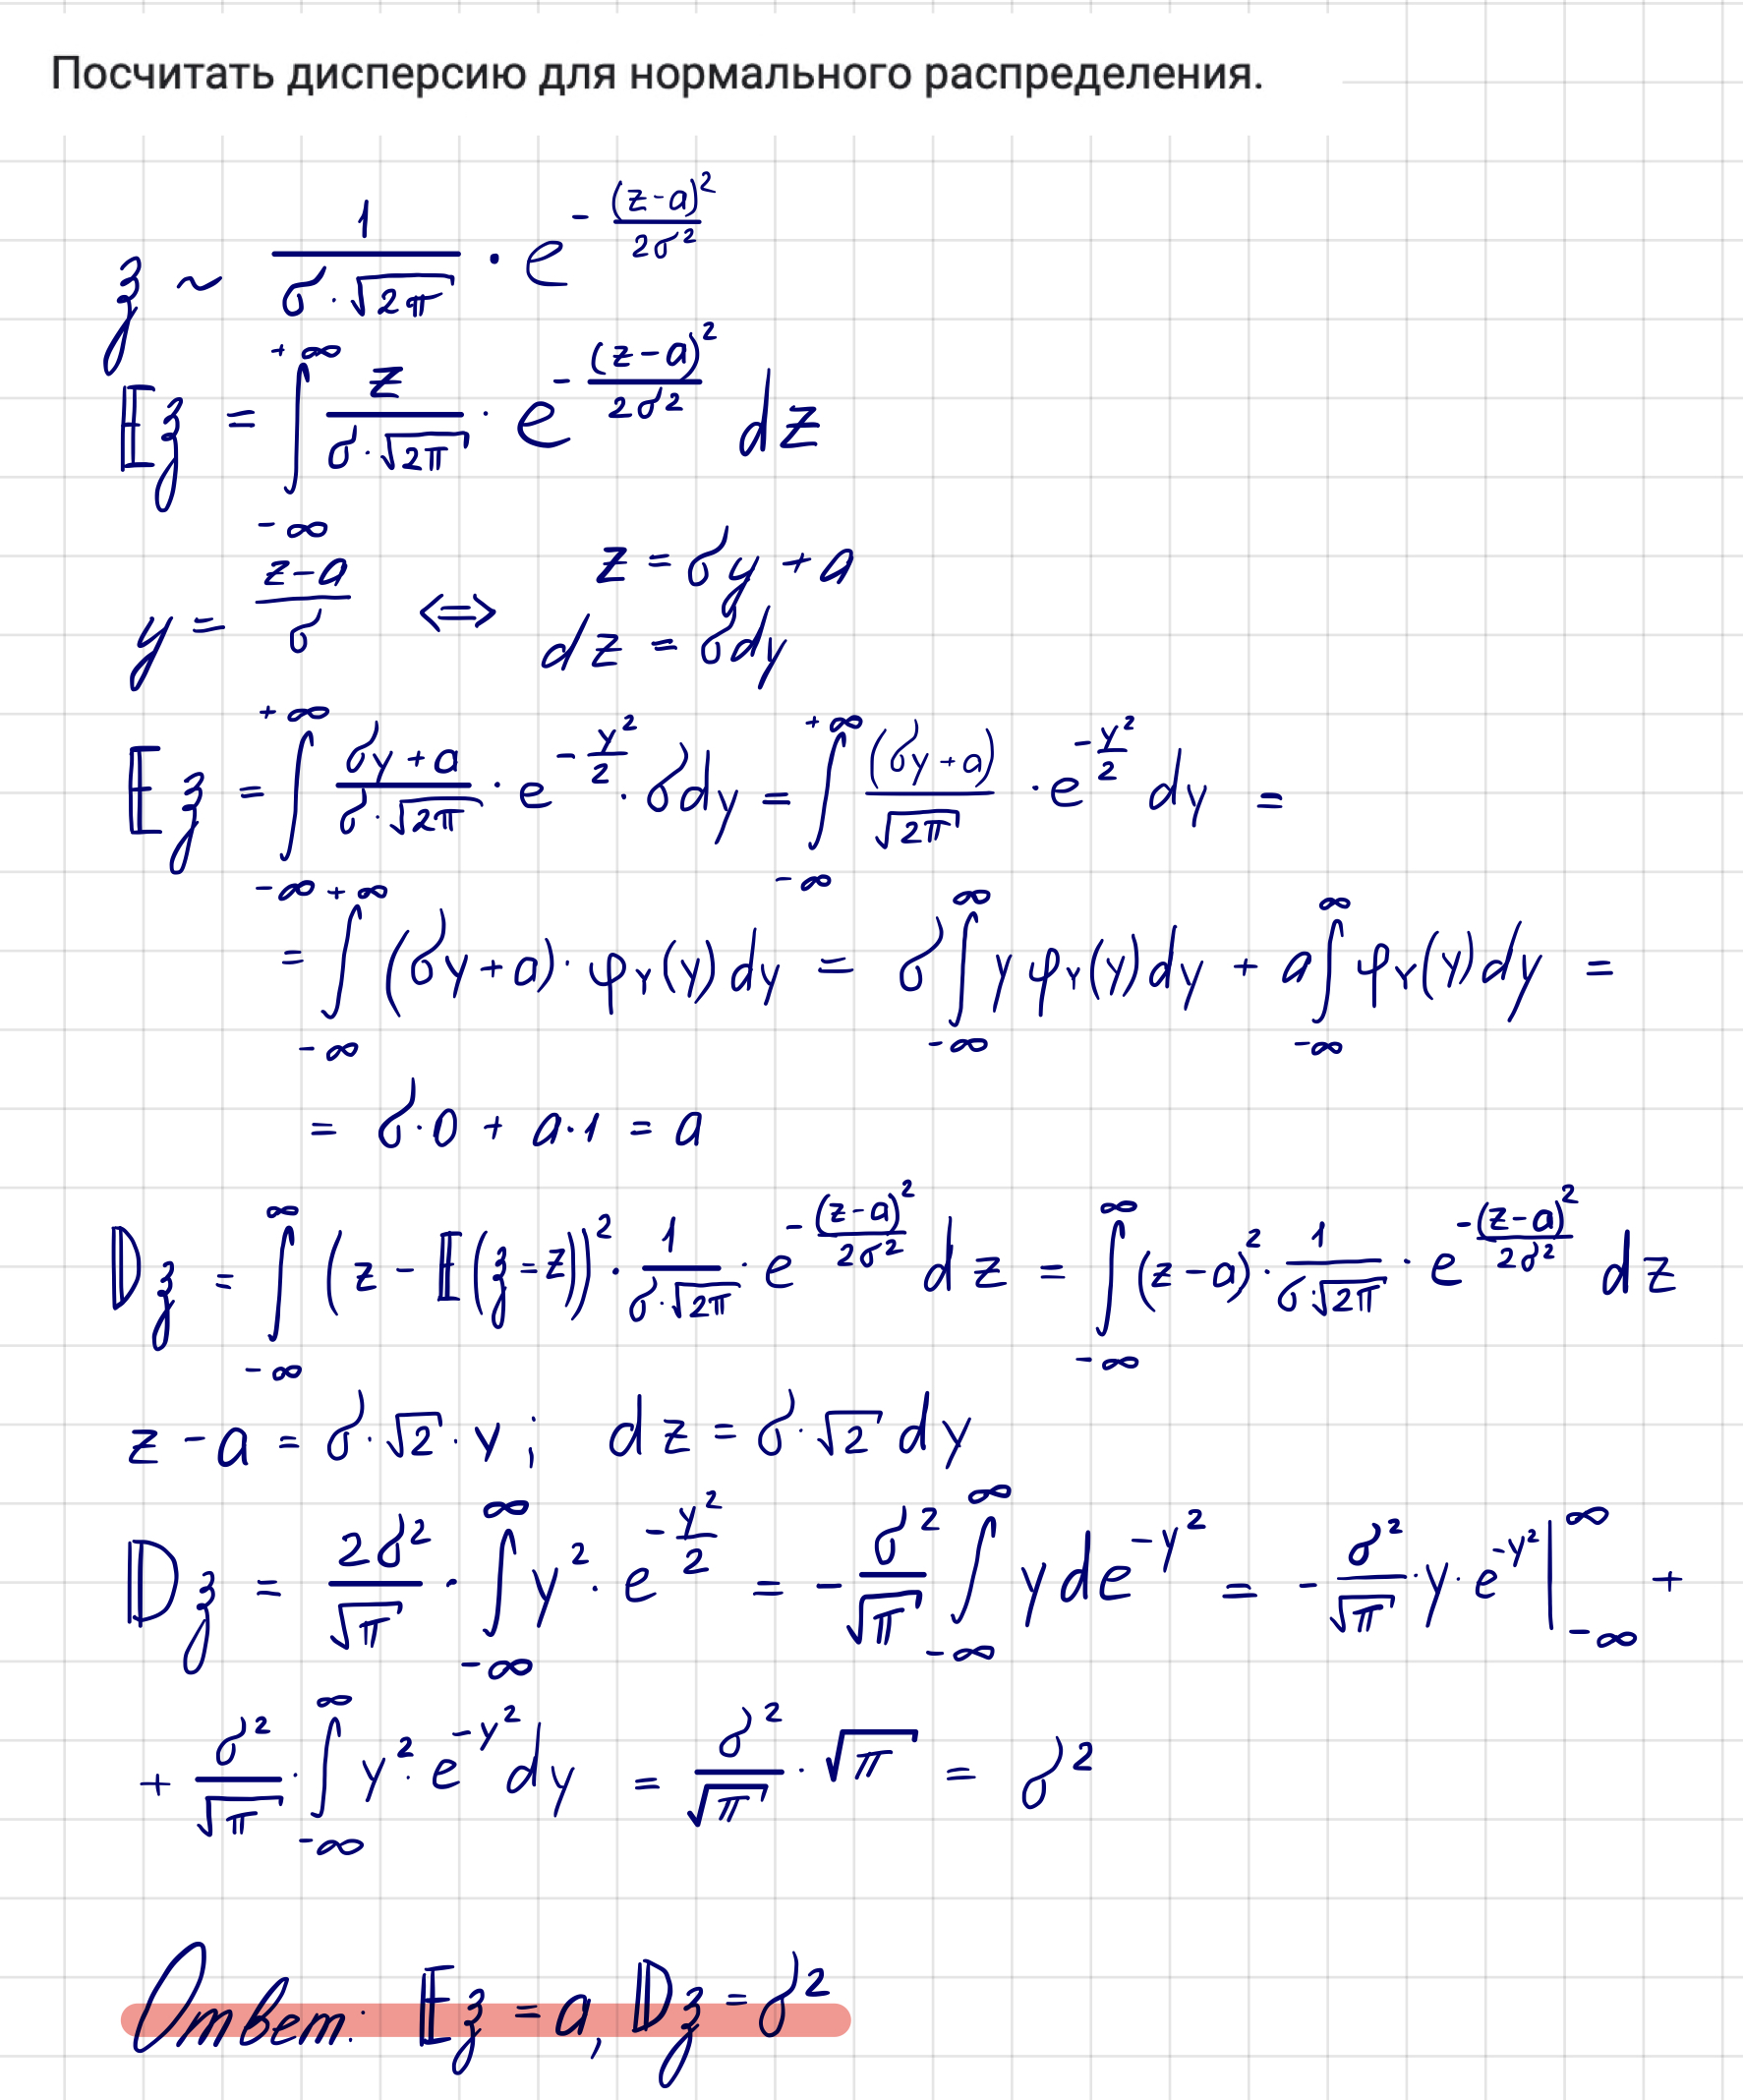 Посчитать дисперсию для нормального распределения.
ξ ~ 1/(σ·√(2π)) · e^(-(z-a)²/(2σ²))
𝔼ξ = ∫_{-∞}^{+∞} z/(σ·√(2π)) · e^(-(z-a)²/(2σ²)) dz
y = (z-a)/σ ⟺ z = σy + a
dz = σdy
𝔼ξ = ∫_{-∞}^{+∞} (σy+a)/(σ·√(2π)) · e^(-y²/2) · σdy = ∫_{-∞}^{+∞} (σy+a)/√(2π) · e^(-y²/2) dy =
= ∫_{-∞}^{+∞} (σy+a)·φ_Y(y)dy = σ∫_{-∞}^{∞} yφ_Y(y)dy + a∫_{-∞}^{∞} φ_Y(y)dy =
= σ·0 + a·1 = a
𝔻ξ = ∫_{-∞}^{∞} (z - 𝔼(ξ=z))² · 1/(σ·√(2π)) · e^(-(z-a)²/(2σ²)) dz = ∫_{-∞}^{∞} (z-a)² · 1/(σ·√(2π)) · e^(-(z-a)²/(2σ²)) dz
z - a = σ·√2·y; dz = σ·√2 dy
𝔻ξ = 2σ²/√π · ∫_{-∞}^{∞} y²·e^(-y²/2) = -σ²/√π ∫_{-∞}^{∞} y de^(-y²) = -σ²/√π · y·e^(-y²)|_{-∞}^{∞} +
+ σ²/√π · ∫_{-∞}^{∞} y²·e^(-y²) dy = σ²/√π · √π = σ²
Ответ: 𝔼ξ = a, 𝔻ξ = σ²